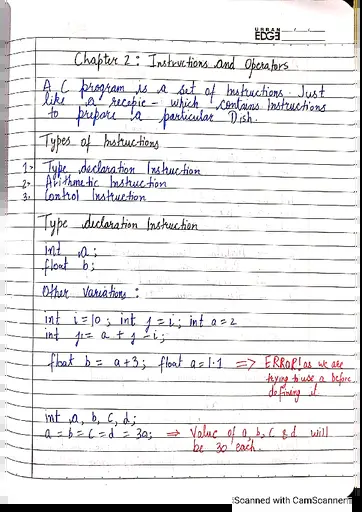 URBAN
EDGE
Chapter 2: Instructions and Operators
A C program is a set of Instructions. Just
like a recepie - which contains Instructions
to prepare a particular Dish.
Types of Instructions
1. Type declaration Instruction
2. Arithmetic Instruction
3. Control Instruction
Type declaration Instruction
int a;
float b;
Other variations:
int i=10; int j=i; int a=2
int j1= a + j - i;
float b = a+3; float a=1.1 => ERROR! as we are
trying to use a before
defining it.
int a, b, c, d;
a = b = c = d = 30; => Value of a, b, c & d will
be 30 each.
Scanned with CamScanner